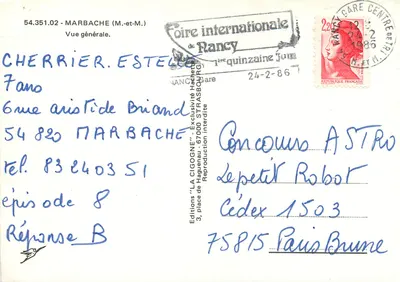 54.351.02 - MARBACHE (M.-et-M.)
Vue générale.
CHERRIER. ESTELLE
7 ans
6 rue aristide Briand
54 820 MARBACHE
tel. 83 24 03 51
épisode 8
Réponse B
Editions "LA CIGOGNE" - Exclusivité Hachette
3, place de Haguenau - 67000 STRASBOURG
Reproduction interdite
Foire internationale
de Nancy
1ère quinzaine Juin
NANCY Gare
24-2-86
NANCY GARE CENTRE DE TRI
2-2
1986
2,20
Concours ASTRO
Le petit Robot
Cédex 1503
75815 Paris Brune